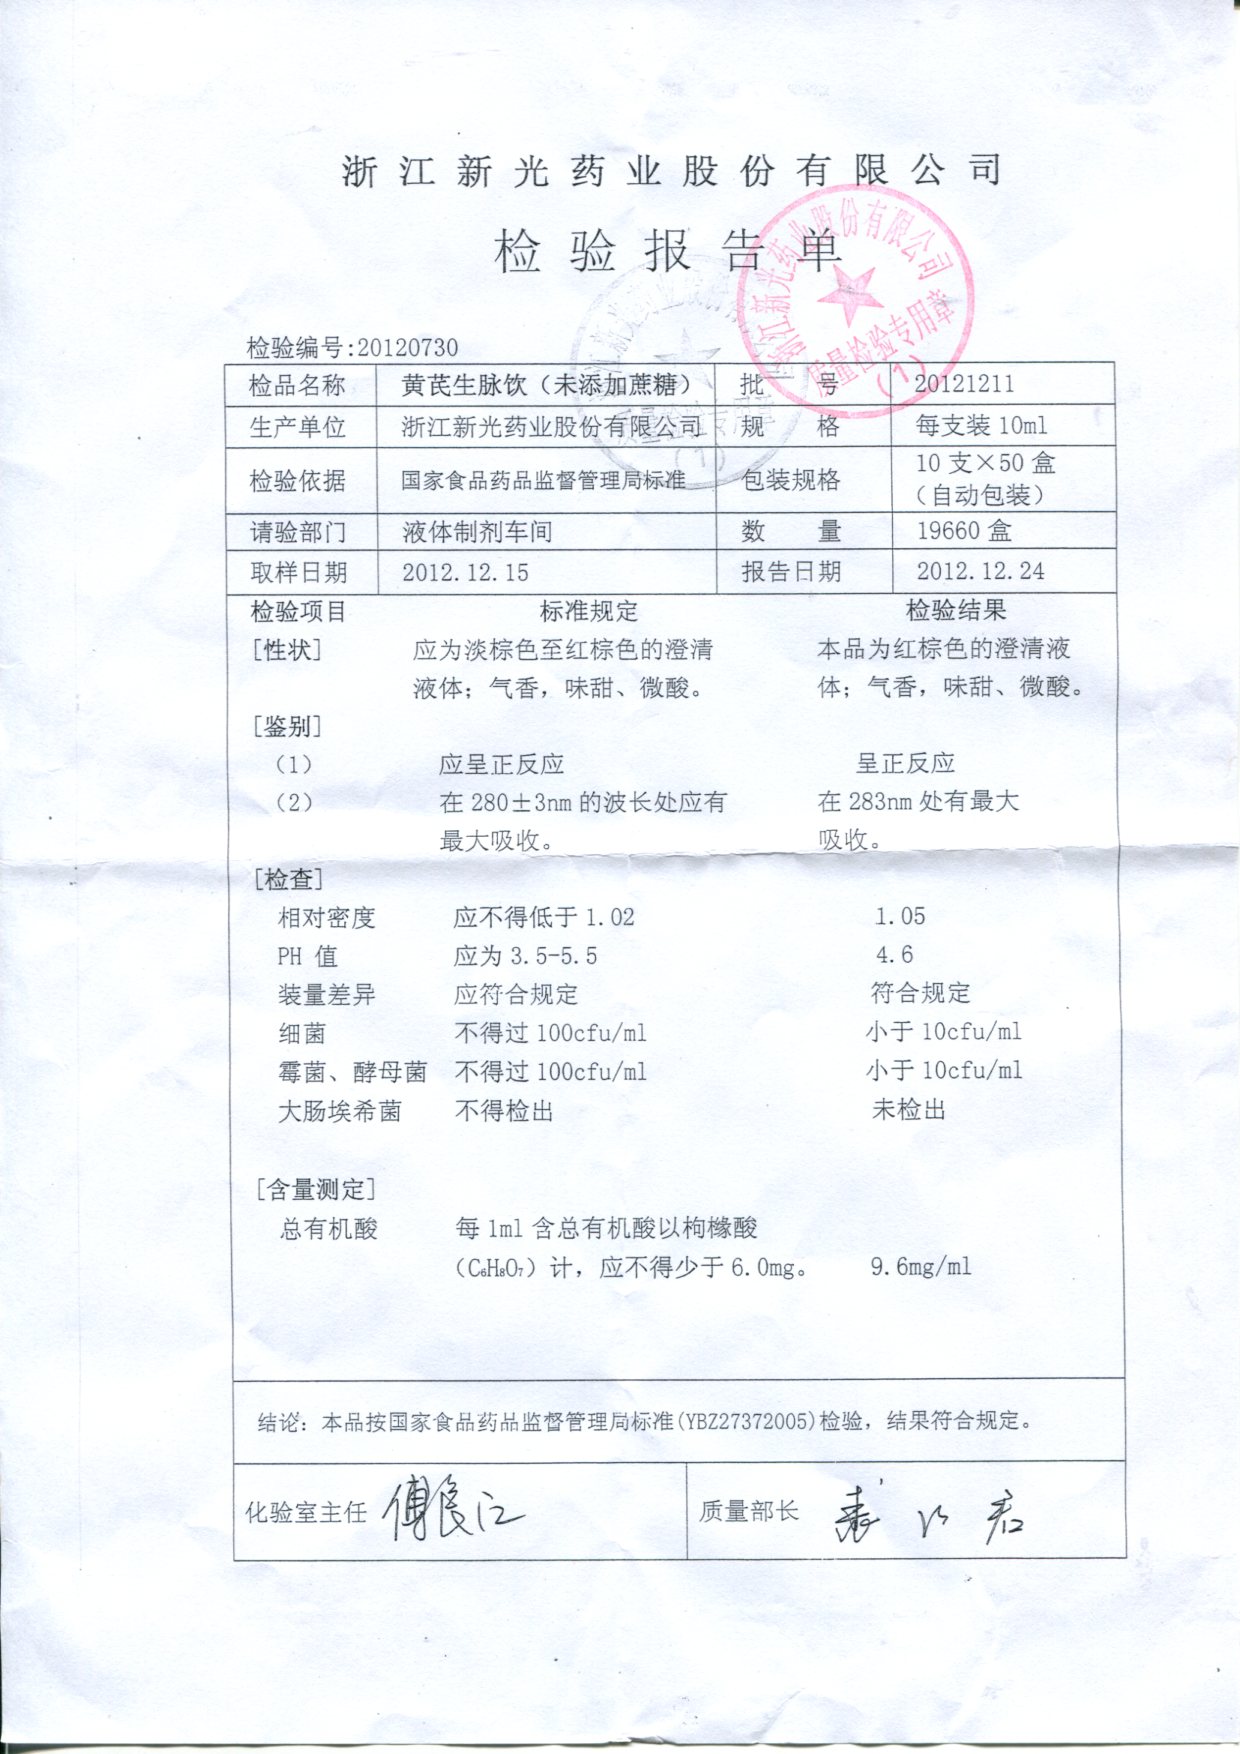 浙江新光药业股份有限公司
检验报告单
浙江新光药业股份有限公司
质量检验专用章
(1)
检验编号:20120730
检品名称 黄芪生脉饮（未添加蔗糖） 批 号 20121211
生产单位 浙江新光药业股份有限公司 规 格 每支装10ml
检验依据 国家食品药品监督管理局标准 包装规格 10支×50盒
（自动包装）
请验部门 液体制剂车间 数 量 19660盒
取样日期 2012.12.15 报告日期 2012.12.24
检验项目 标准规定 检验结果
[性状] 应为淡棕色至红棕色的澄清 本品为红棕色的澄清液
液体；气香，味甜、微酸。 体；气香，味甜、微酸。
[鉴别]
（1） 应呈正反应 呈正反应
（2） 在280±3nm的波长处应有 在283nm处有最大
最大吸收。 吸收。
[检查]
相对密度 应不得低于1.02 1.05
PH 值 应为3.5-5.5 4.6
装量差异 应符合规定 符合规定
细菌 不得过100cfu/ml 小于10cfu/ml
霉菌、酵母菌 不得过100cfu/ml 小于10cfu/ml
大肠埃希菌 不得检出 未检出
[含量测定]
总有机酸 每1ml含总有机酸以枸橼酸
（C₆H₈O₇）计，应不得少于6.0mg。 9.6mg/ml
结论：本品按国家食品药品监督管理局标准(YBZ27372005)检验，结果符合规定。
化验室主任 质量部长